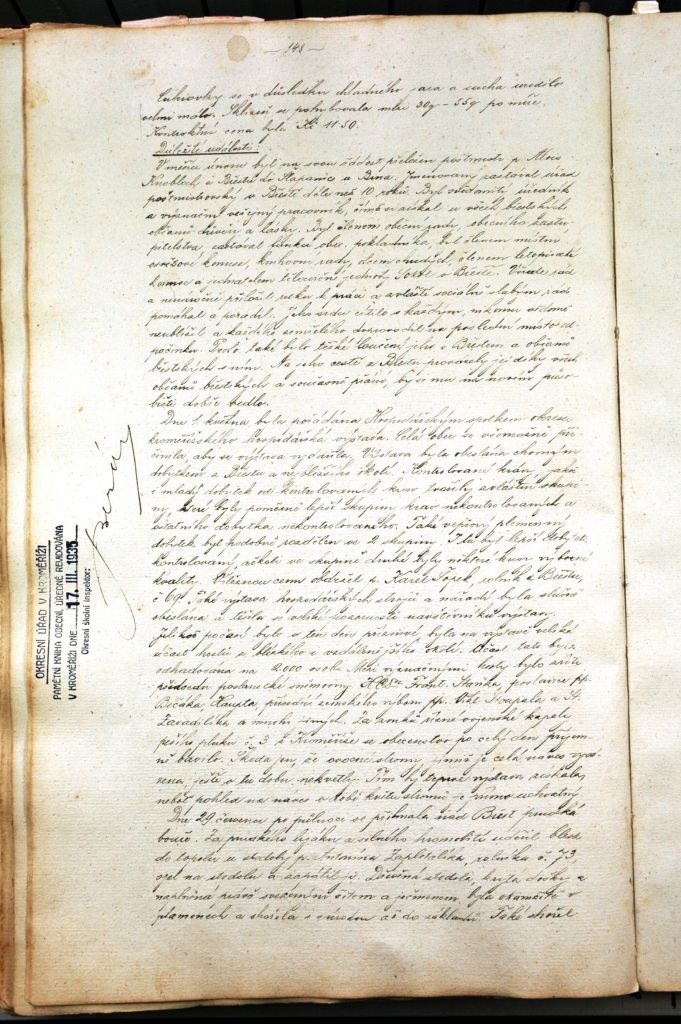 — 148 —
Cukrovky se v důsledku chladného jara a sucha urodilo
velmi málo. Sklizeň se pohybovala mezi 30q – 55q po míře.
Kontraktní cena byla Kč 11·50.
Důležité události!
V měsíci únoru byl na svou žádost přeložen poštmistr p. Alois
Knobloch z Břestu do Šlapanic u Brna. Jmenovaný zastával úřad
poštmistrovský v Břestě déle než 10 roků. Byl svědomitý úředník
a význačný veřejný pracovník, čímž si získal u všech břestských
občanů důvěru a lásku. Byl členem obecní rady, obecního zastu-
pitelstva, zastával funkci obec. pokladníka, byl členem místní
osvětové komise, knihovní rady, členem letopisecké
komise a jednatelem tělocvičné jednoty Sokol v Břestě. Všude rád
a nenáročně přiložil ruku k práci a zvláště sociálně slabým rád
pomáhal a poradil. Jeho srdce cítilo s každým, nikomu vědomě
neublížil a každého zemřelého doprovodil na poslední místo od-
počinku. Proto také bylo těžké loučení jeho s Břestem a občanů
břestských s ním. Na jeho cestě z Břestu provázely jej díky všech
občanů břestských a současně přání, by se mu na novém půso-
bišti dobře vedlo.
Dne 1. května byla pořádána Hospodářským spolkem okresu
kroměřížského hospodářská výstava. Celá obec se všemožně při-
činila, aby se výstava vydařila. Výstava byla obeslána chovným
dobytkem z Břestu a nejbližšího okolí. Kontrolované krávy, jakož
i mladý dobytek od kontrolovaných krav tvořily zvláštní skupi-
ny, které byly poměrně lepší skupiny krav nekontrolovaných a
ostatního dobytka nekontrolovaného. Také vepřový plemenný
dobytek byl podobně rozdělen ve 2 skupiny. I tu byl lepší dobytek
kontrolovaný, ačkoli ve skupině druhé byly některé kusy výborné
kvality. Vítěznou cenu obdržel p. Karel Sopek, rolník z Břestu,
č. 69. Také výstava hospodářských strojů a nářadí byla slušně
obeslána a těšila se velké pozornosti návštěvníků výstavy.
Jelikož počasí bylo v ten den příznivé, byla na výstavě veliká
účast hostí z blízkého i vzdálenějšího okolí. Účast tato byla
odhadována na 2000 osob. Mezi význačnými hosty bylo zříti
předsedu poslanecké sněmovny Frant. Staňka, poslance pp.
zemského výboru pp.
Zavadilíka a mnoho jiných. Za zvuků řízné vojenské kapely
pěšího pluku č. 3 z Kroměříže se obecenstvo po celý den příjem-
ně bavilo. Škoda jen, že ovocné stromy, jimiž je celá náves vysá-
zena, ještě v tu dobu nekvetly. Tím by teprve výstava získala,
neboť pohled na náves v době květu stromů je přímo uchvatný.
Dne 29 července po půlnoci se přihnala nad Břest prudká
bouře. Za prudkého lijáku a silného hromobití udeřil blesk
do topolu u stodoly p. Antonína Zapletalíka, rolníka č. 73,
sjel na stodolu a zapálil ji. Dřevěná stodola, krytá došky a
naplněná právě svezeným žitem a ječmenem byla okamžitě v
plamenech a shořela i s úrodou až do základů. Také shořel
OKRESNÍ ÚŘAD V KROMĚŘÍŽI
PAMĚTNÍ KNIHA OBECNÍ, ÚŘEDNĚ REVIDOVÁNA
V KROMĚŘÍŽI DNE 17. III. 1935
Okresní školní inspektor: